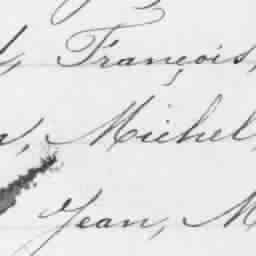 François,
Michel,
Jean, M